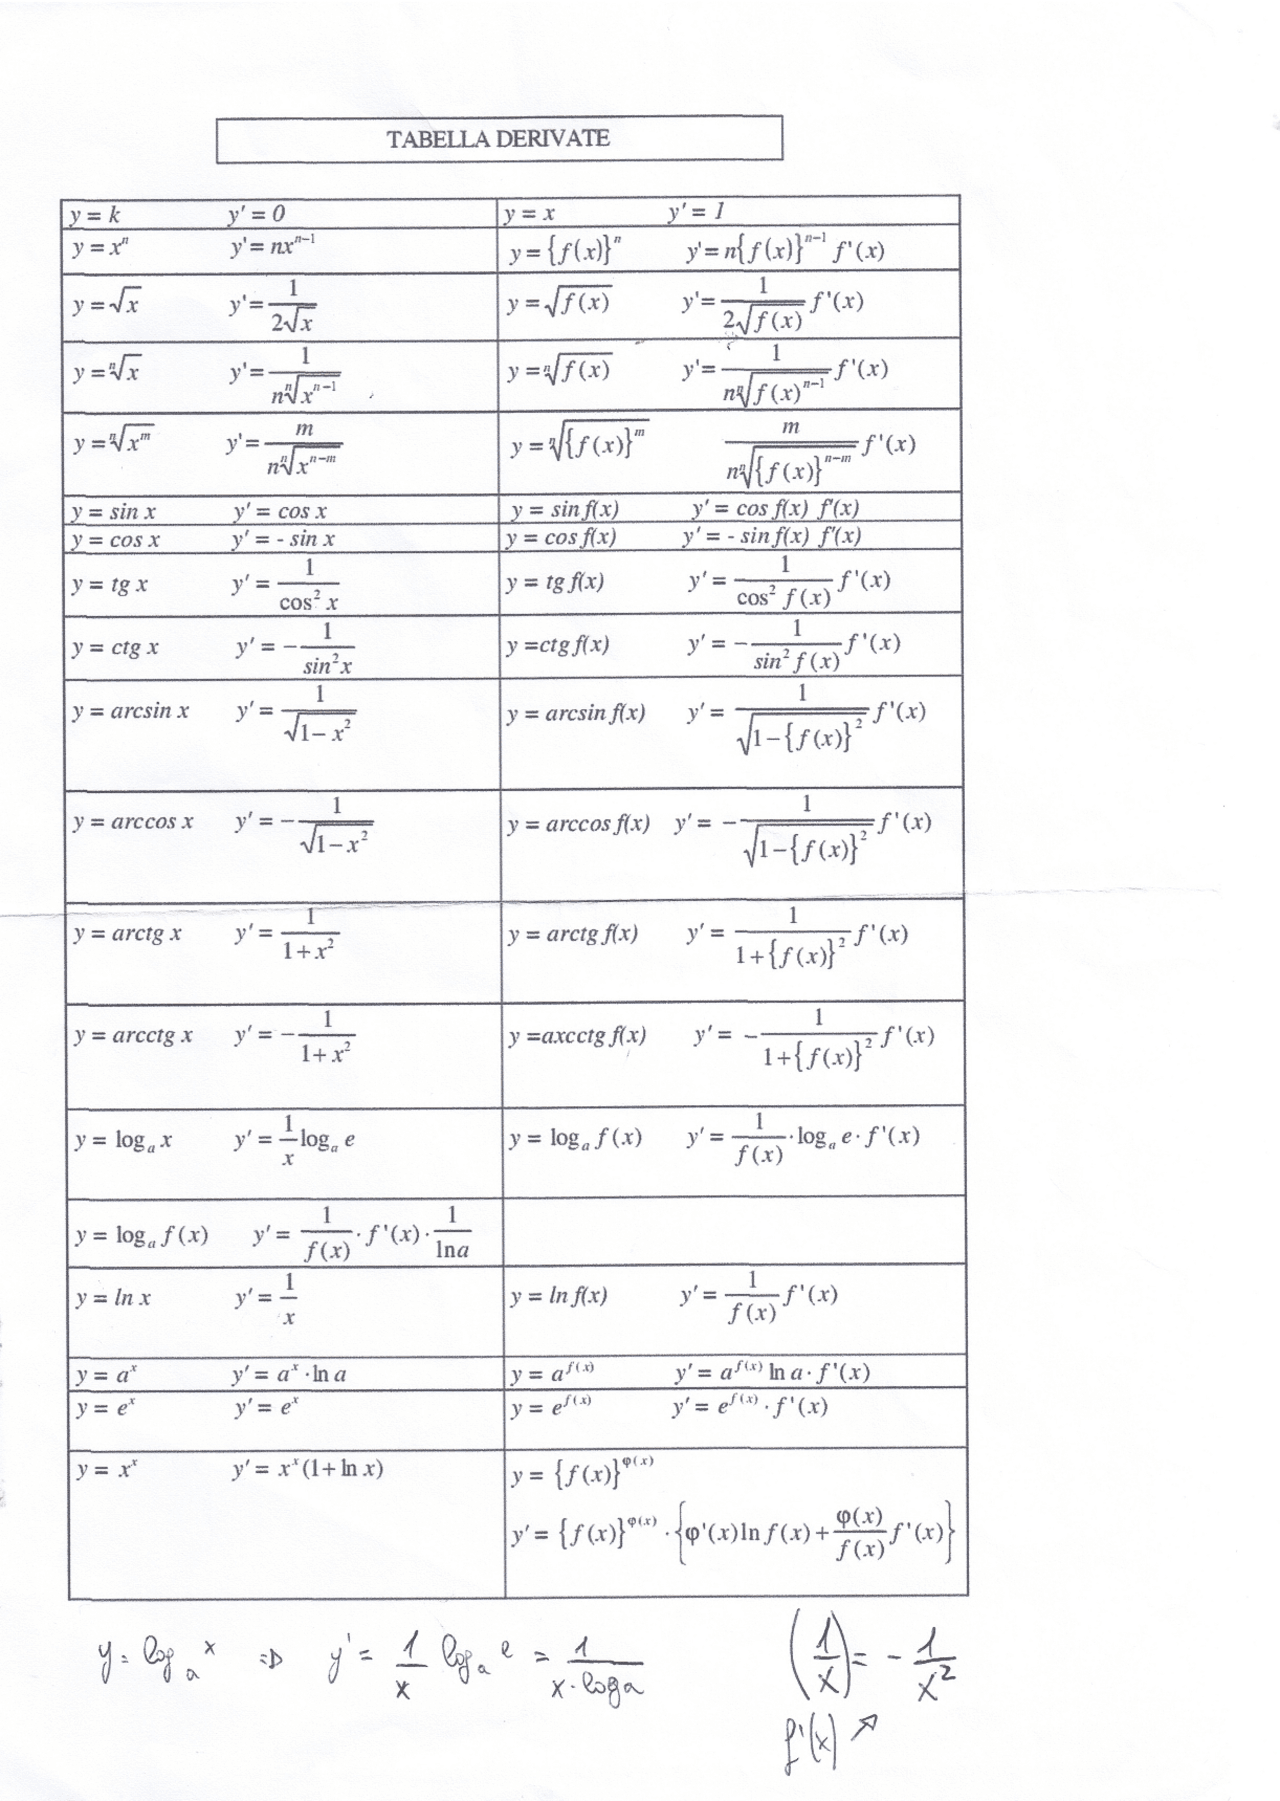 TABELLA DERIVATE
y = k y' = 0 y = x y' = 1
y = xⁿ y' = nxⁿ⁻¹ y = {f(x)}ⁿ y' = n{f(x)}ⁿ⁻¹ f'(x)
y = √x y' = 1/(2√x) y = √f(x) y' = 1/(2√f(x)) f'(x)
y = ⁿ√x y' = 1/(n ⁿ√xⁿ⁻¹) y = ⁿ√f(x) y' = 1/(n ⁿ√f(x)ⁿ⁻¹) f'(x)
y = ⁿ√xᵐ y' = m/(n ⁿ√xⁿ⁻ᵐ) y = ⁿ√{f(x)}ᵐ m/(n ⁿ√{f(x)}ⁿ⁻ᵐ) f'(x)
y = sin x y' = cos x y = sin f(x) y' = cos f(x) f'(x)
y = cos x y' = - sin x y = cos f(x) y' = - sin f(x) f'(x)
y = tg x y' = 1/cos² x y = tg f(x) y' = 1/cos² f(x) f'(x)
y = ctg x y' = −1/sin²x y =ctg f(x) y' = −1/sin² f(x) f'(x)
y = arcsin x y' = 1/√(1−x²) y = arcsin f(x) y' = 1/√(1−{f(x)}²) f'(x)
y = arccos x y' = −1/√(1−x²) y = arccos f(x) y' = −1/√(1−{f(x)}²) f'(x)
y = arctg x y' = 1/(1+x²) y = arctg f(x) y' = 1/(1+{f(x)}²) f'(x)
y = arcctg x y' = −1/(1+x²) y =axcctg f(x) y' = −1/(1+{f(x)}²) f'(x)
y = logₐ x y' = 1/x logₐ e y = logₐ f(x) y' = 1/f(x) · logₐ e · f'(x)
y = logₐ f(x) y' = 1/f(x) · f'(x) · 1/ln a
y = ln x y' = 1/x y = ln f(x) y' = 1/f(x) f'(x)
y = aˣ y' = aˣ · ln a y = a^f(x) y' = a^f(x) ln a · f'(x)
y = eˣ y' = eˣ y = e^f(x) y' = e^f(x) · f'(x)
y = xˣ y' = xˣ(1+ln x) y = {f(x)}^φ(x)
y' = {f(x)}^φ(x) · {φ'(x)ln f(x) + φ(x)/f(x) f'(x)}
y = logₐ x ⇒ y' = 1/x logₐ e = 1/(x · log a) (1/x) = − 1/x²
f'(x) ↗